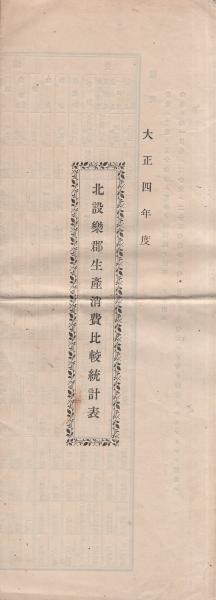 大正四年度
北設樂郡生產消費比較統計表